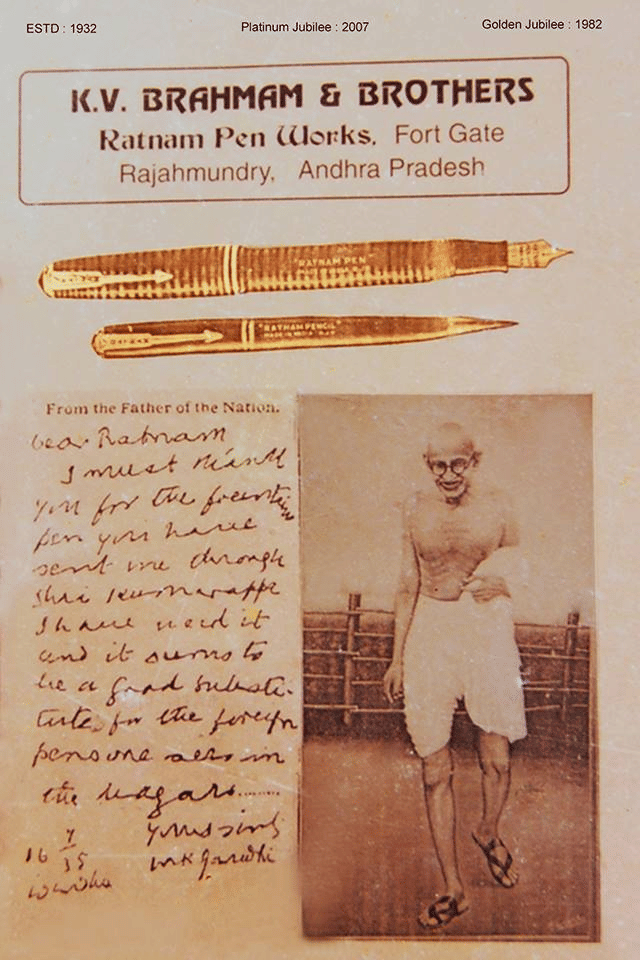 ESTD : 1932
Platinum Jubilee : 2007
Golden Jubilee : 1982
K.V. BRAHMAM & BROTHERS
Ratnam Pen Works, Fort Gate
Rajahmundry, Andhra Pradesh
"RATNAM PEN"
"RATNAM PENCIL"
MADE IN INDIA
From the Father of the Nation.
Dear Ratnam
I must thank
you for the fountain
pen you have
sent me through
Shri Kumarappa
I have used it
and it seems to
be a good substi-
tute for the foreign
pens one sees in
the bazars........
Yours sincly
16 7 35
MKGandhi
Wardha